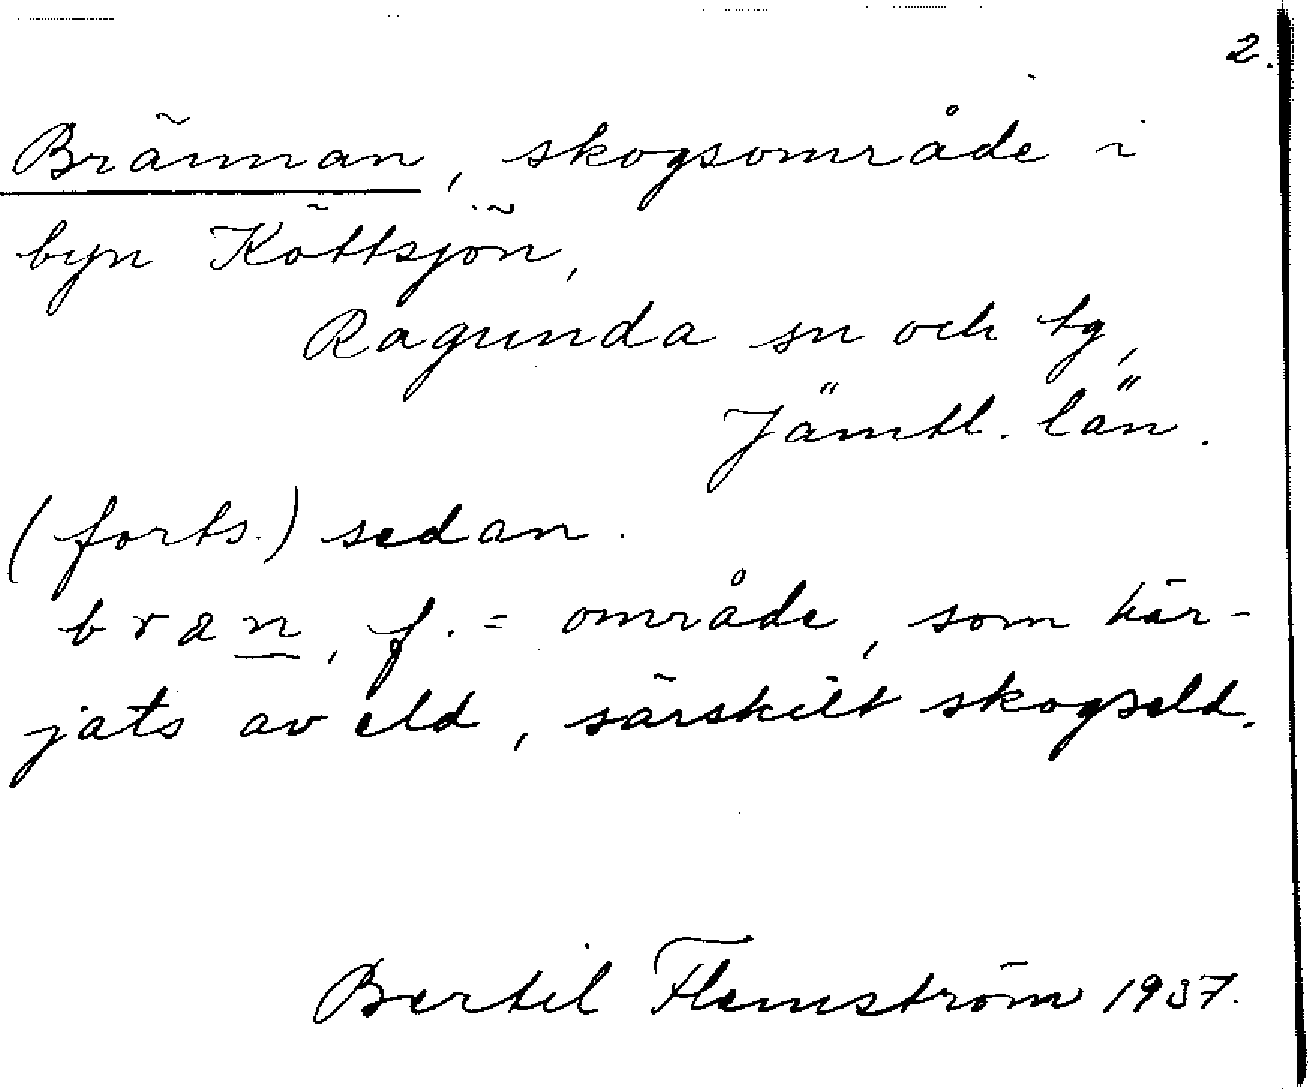 2.
Brännan, skogsområde i
byn Köttsjön,
Ragunda sn och tg,
Jämtl. län.
(forts.) sedan.
bran, f. = område, som här-
jats av eld, särskilt skogseld.
Bertil Flemström 1937.